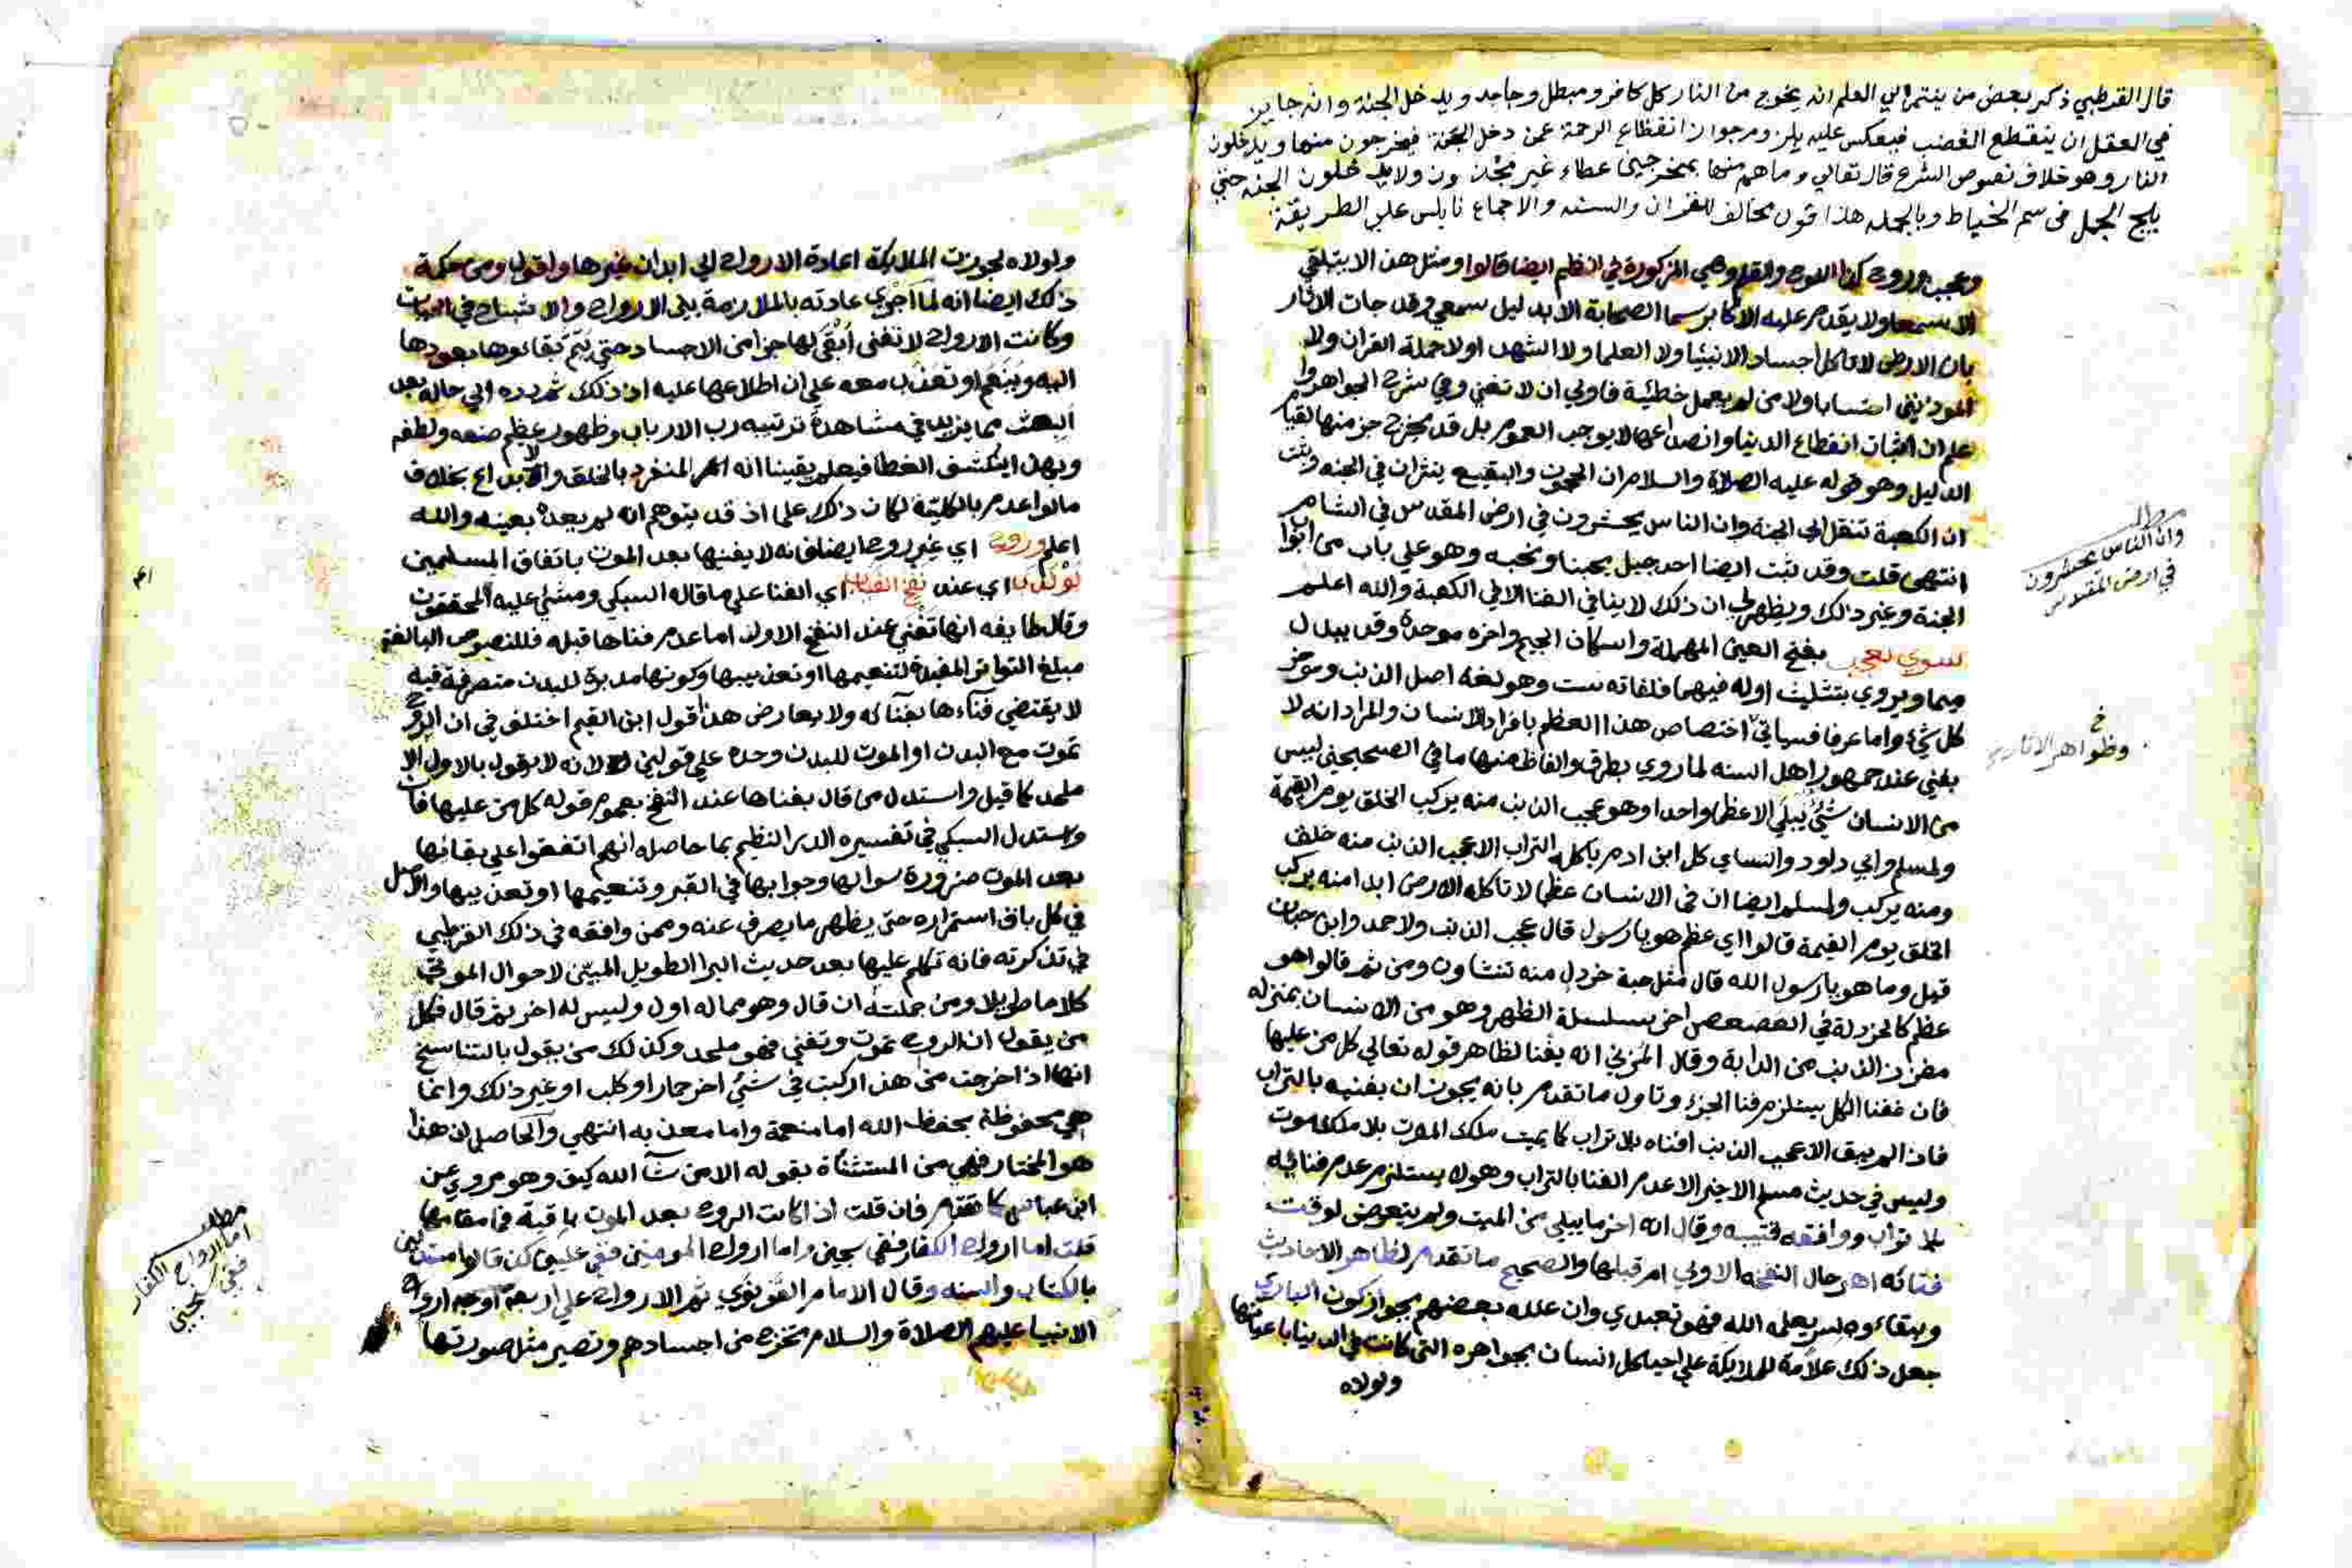 قال القرطبي ذكر بعض من ينتمي الي العلم انه يخرج من النار كل كافر ومبطل وجاحد ويدخل الجنة وانه جايز
في العقل ان ينقطع الغضب فيعكس عليه يلزمه جواز انقطاع الرحمة عمن دخل الجنة فيخرجون منها ويدخلون
النار وهو خلاف نصوص الشرع قال تعالي وما هم منها بمخرجين عطاء غير مجذوذ ولا يدخلون الجنه حتي
يلج الجمل في سم الخياط وبالجمله هذا قول مخالف للقران والسنه والاجماع نابلسي علي الطريقة
وعجب وروح كذا اللوح والقلم وهي المذكورة في النظم ايضا قالوا ومثل هذا لا يتلقي
الا سمعا ولا يقدم عليه الاكابر سيما الصحابة الا بدليل سمعي وقد جات الاثار
بان الارض لا تاكل اجساد الانبيا ولا العلما ولا الشهدا ولا حملة القران ولا
الموذنين احتسابا ولا من لم يعمل خطئية فاولي ان لا تفني وفي شرح الجواهر
علم ان اثبات انقطاع الدنيا وانصداعها لا يوجب العموم بل قد يخرج جز منها لقيام
الدليل وهو قوله عليه الصلاة والسلام ان الحجون والبقيع ينثران في الجنه وثبت
ان الكعبة تنقل الي الجنه وان الناس يحشرون في ارض المقدس في الشام
انتهي قلت وقد ثبت ايضا احد جبل يحبنا ونحبه وهو علي باب من ابواب
الجنة وغير ذلك ويظهر لي ان ذلك لا ينافي الفنا الا في الكعبة والله اعلم
سوي عجب بفتح العين المهملة واسكان الجيم واخره موحدة وقد يبدل
ميما ويروي بتثليث اوله فيهما فلغاته ست وهو لغة اصل الذنب وموخر
كل شيء واما عرفا فسياتي اختصاص هذا العظم بافراد الانسان والمراد انه لا
يفني عند جمهور اهل السنه لما روي بطرق والفاظ منها ما في الصحيحين ليس
من الانسان شيء يبلي الا عظما واحدا وهو عجب الذنب منه يركب الخلق يوم القيمة
ولمسلم وابي داود والنساي كل ابن ادم ياكله التراب الا عجب الذنب منه خلق
ومنه يركب ولمسلم ايضا ان في الانسان عظما لا تاكله الارض ابدا منه يركب
الخلق يوم القيمة قالوا اي عظم هو يا رسول قال عجب الذنب ولاحمد وابن حبان
قيل وما هو يا رسول الله قال مثل حبة خردل منه تنشاون ومن ثم قالوا هو
عظم كالخردلة في العصعص اخر سلسلة الظهر وهو من الانسان بمنزله
مغرز الذنب من الدابة وقال المزني انه يفنا لظاهر قوله تعالي كل من عليها
فان ففنا الكل يستلزم فنا الجزء وتاول ما تقدم بانه يجوز ان يفنيه بالتراب
فاذا لم يبق الا عجب الذنب افناه بلا تراب كما يميت ملك الموت بلا ملك موت
وليس في حديث مسلم الاخير الا عدم الفنا بالتراب وهو لا يستلزم عدم فنائه
بلا تراب ووافقه قتيبه وقال انه اخر ما يبلي من الميت ولم يتعوض لوقت
فنائه اهر حال النفخة الاولي ام قبلها والصحيح ما تقدم لظاهر الاحاديث
وبقاءوه لسر يعلمه الله فهو تعبدي وان علله بعضهم بجواز كون الباري
جعل ذلك علامة للملايكة علي احيا كل انسان بجواهره التي كانت في الدينا باعيانها
ولولاه
وان الناس يحشرون
في ارض المقدس
خ
وظواهر الاثار
ولولاه لجوزت الملايكة اعادة الارواح الي ابدان غيرها واقول ومن حكمة
ذلك ايضا انه لما اجري عادته بالملازمة بين الارواح والاشباح في الحيات
وكانت الارواح لا تفني ابقي لها جزا من الاجساد حتي يتم بقائوها بعودها
اليه وينعم او تعذب معه علي ان اطلاعها عليه اذ ذلك ثم رده الي حاله بعد
البعث مما يزيد في مشاهدة ترتيبه رب الارباب وظهور عظيم صنعه ولطفه
وبهذا ينكشف الغطا فيعلم يقينا انه المنفرد بالخلق والابداع بخلاف
ما لو اعدم بالكليّة لكان ذلك علما اذ قد يتوهم انه لم يعده بعينه والله
اعلم وروح اي غير روح ايضا فانه لا يفنيها بعد الموت باتفاق المسلمين
اي عند نفخ اي الفنا علي ما قاله السبكي ومشي عليه المحققون
وقال طايفه انها تفني عند النفخ الاول اما عدم فناها قبله فللنصوص البالغة
مبلغ التواتر المفيدة لتنعيمها او تعذيبها وكونها مدبرة للبدن متصرفة فيه
لا يقتضي فناءها بفنائه ولا يعارض هذا قول ابن القيم اختلف في ان الروح
تموت مع البدن او الموت للبدن وحده علي قولين لانه لا يقول بالاول الا
ملحد كما قيل واستدل من قال بفناها عند النفخ بعموم قوله كل من عليها فان
واستدل السبكي في تفسيره الدر النظيم بما حاصله انهم اتفقوا علي بقائها
بعد الموت ضرورة سوالها وجوابها في القبر وتنعيمها او تعذيبها والاصل
في كل باق استمراره حتي يظهر ما يصرف عنه وممن وافقه في ذلك القرطبي
في تذكرته فانه تكلم عليها بعد حديث البرا الطويل المبين لاحوال الموتي
كلاما طويلا ومن جملته ان قال وهو مما له اول وليس له اخر ثم قال فكل
من يقول ان الروح تموت وتفني فهو ملحد وكذلك من يقول بالتناسخ
انها اذا خرجت من هذا ركبت في شيء اخر حمار او كلب او غير ذلك وانما
هي محفوظة بحفظ الله اما منعمة واما معذبه انتهي والحاصل ان هذا
هو المختار فهي من المستثناة بقوله الا من شآ الله كيف وهو مروي عن
ابن عباس كما تقدم فان قلت اذا كانت الروح بعد الموت باقية فما مقامها
قلت اما ارواح الكفار ففي سجين واما ارواح المومنين ففي عليين قالوا
بالكتاب والسنه وقال الامام القونوي ثم الارواح علي اربعة اوجه ارواح
الانبيا عليهم الصلاة والسلام تخرج من اجسادهم وتصير مثل صورتها
مطلب
اما ارواح الكفار
ففي سجين